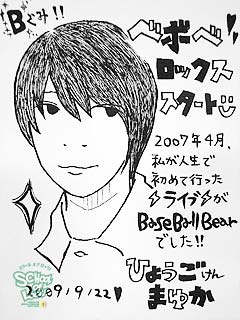 Bぐみ!!
ベボベ
ロックス
スタート
2007年4月、
私が人生で
初めて行った
ライブが
BaseBallBear
でした!!
ひょうごけん
まゆか
SCHOOL
OF
LOCK!
2009/9/22